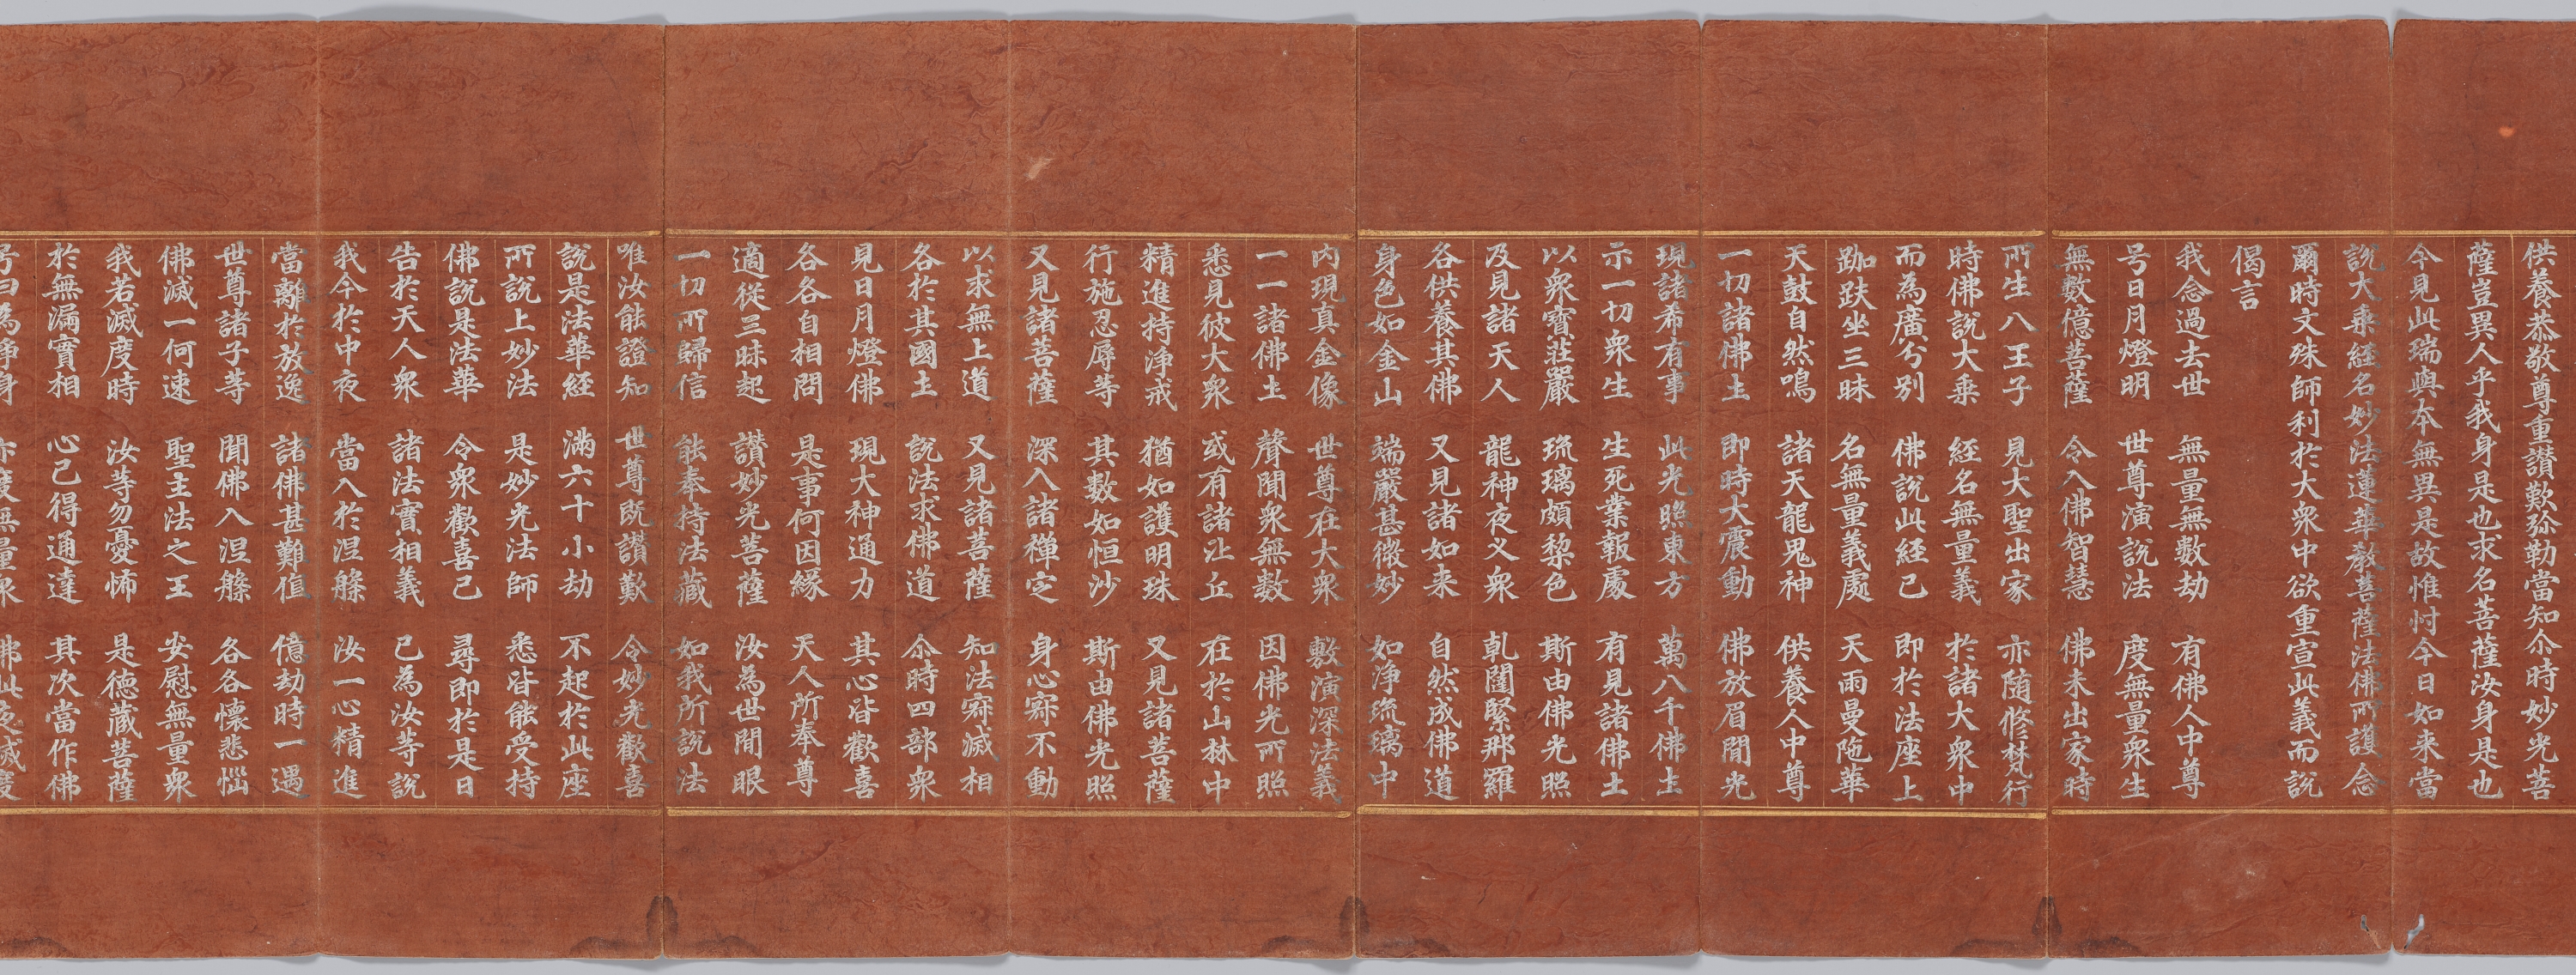 供養恭敬尊重讃歎弥勒當知尒時妙光菩
薩豈異人乎我身是也求名菩薩汝身是也
今見此瑞與本無異是故惟忖今日如来當
說大乗経名妙法蓮華教菩薩法佛所護念
爾時文殊師利於大衆中欲重宣此義而說
偈言
我念過去世 無量無數劫 有佛人中尊
号日月燈明 世尊演說法 度無量衆生
無數億菩薩 令入佛智慧 佛未出家時
所生八王子 見大聖出家 亦随修梵行
時佛說大乗 経名無量義 於諸大衆中
而為廣分別 佛說此経已 即於法座上
跏趺坐三昧 名無量義處 天雨曼陁華
天鼓自然鳴 諸天龍鬼神 供養人中尊
一切諸佛土 即時大震動 佛放眉間光
現諸希有事 此光照東方 萬八千佛土
示一切衆生 生死業報處 有見諸佛土
以衆寶莊嚴 琉璃頗梨色 斯由佛光照
及見諸天人 龍神夜叉衆 乹闥緊那羅
各供養其佛 又見諸如来 自然成佛道
身色如金山 端嚴甚微妙 如淨琉璃中
内現真金像 世尊在大衆 敷演深法義
一一諸佛土 聲聞衆無數 因佛光所照
悉見彼大衆 或有諸比丘 在於山林中
精進持淨戒 猶如護明珠 又見諸菩薩
行施忍辱等 其數如恒沙 斯由佛光照
又見諸菩薩 深入諸禪定 身心寂不動
以求無上道 又見諸菩薩 知法寂滅相
各於其國土 說法求佛道 尒時四部衆
見日月燈佛 現大神通力 其心皆歡喜
各各自相問 是事何因緣 天人所奉尊
適從三昧起 讃妙光菩薩 汝為世間眼
一切所歸信 能奉持法藏 如我所說法
唯汝能證知 世尊既讃歎 令妙光歡喜
說是法華経 滿六十小劫 不起於此座
所說上妙法 是妙光法師 悉皆能受持
佛說是法華 令衆歡喜已 尋即於是日
告於天人衆 諸法實相義 已為汝等說
我今於中夜 當入於涅槃 汝一心精進
當離於放逸 諸佛甚難值 億劫時一遇
世尊諸子等 聞佛入涅槃 各各懷悲惱
佛滅一何速 聖主法之王 安慰無量衆
我若滅度時 汝等勿憂怖 是德藏菩薩
於無漏實相 心已得通達 其次當作佛
号曰為淨身 亦度無量衆 佛此夜滅度